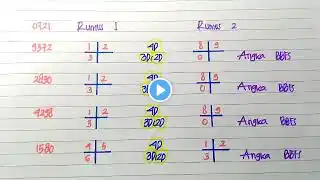 0721 Rumus 1 Rumus 2
9372 1 2 4D 8 9
3D/2D 0 Angka BBFS
2890 1 2 4D 8 9
3 3D/2D 0 Angka BBFS
4298 1 2 4D 8 9
3 3D/2D 0 Angka BBFS
1580 4 5 4D 1 2
6 3D/2D 3 Angka BBFS